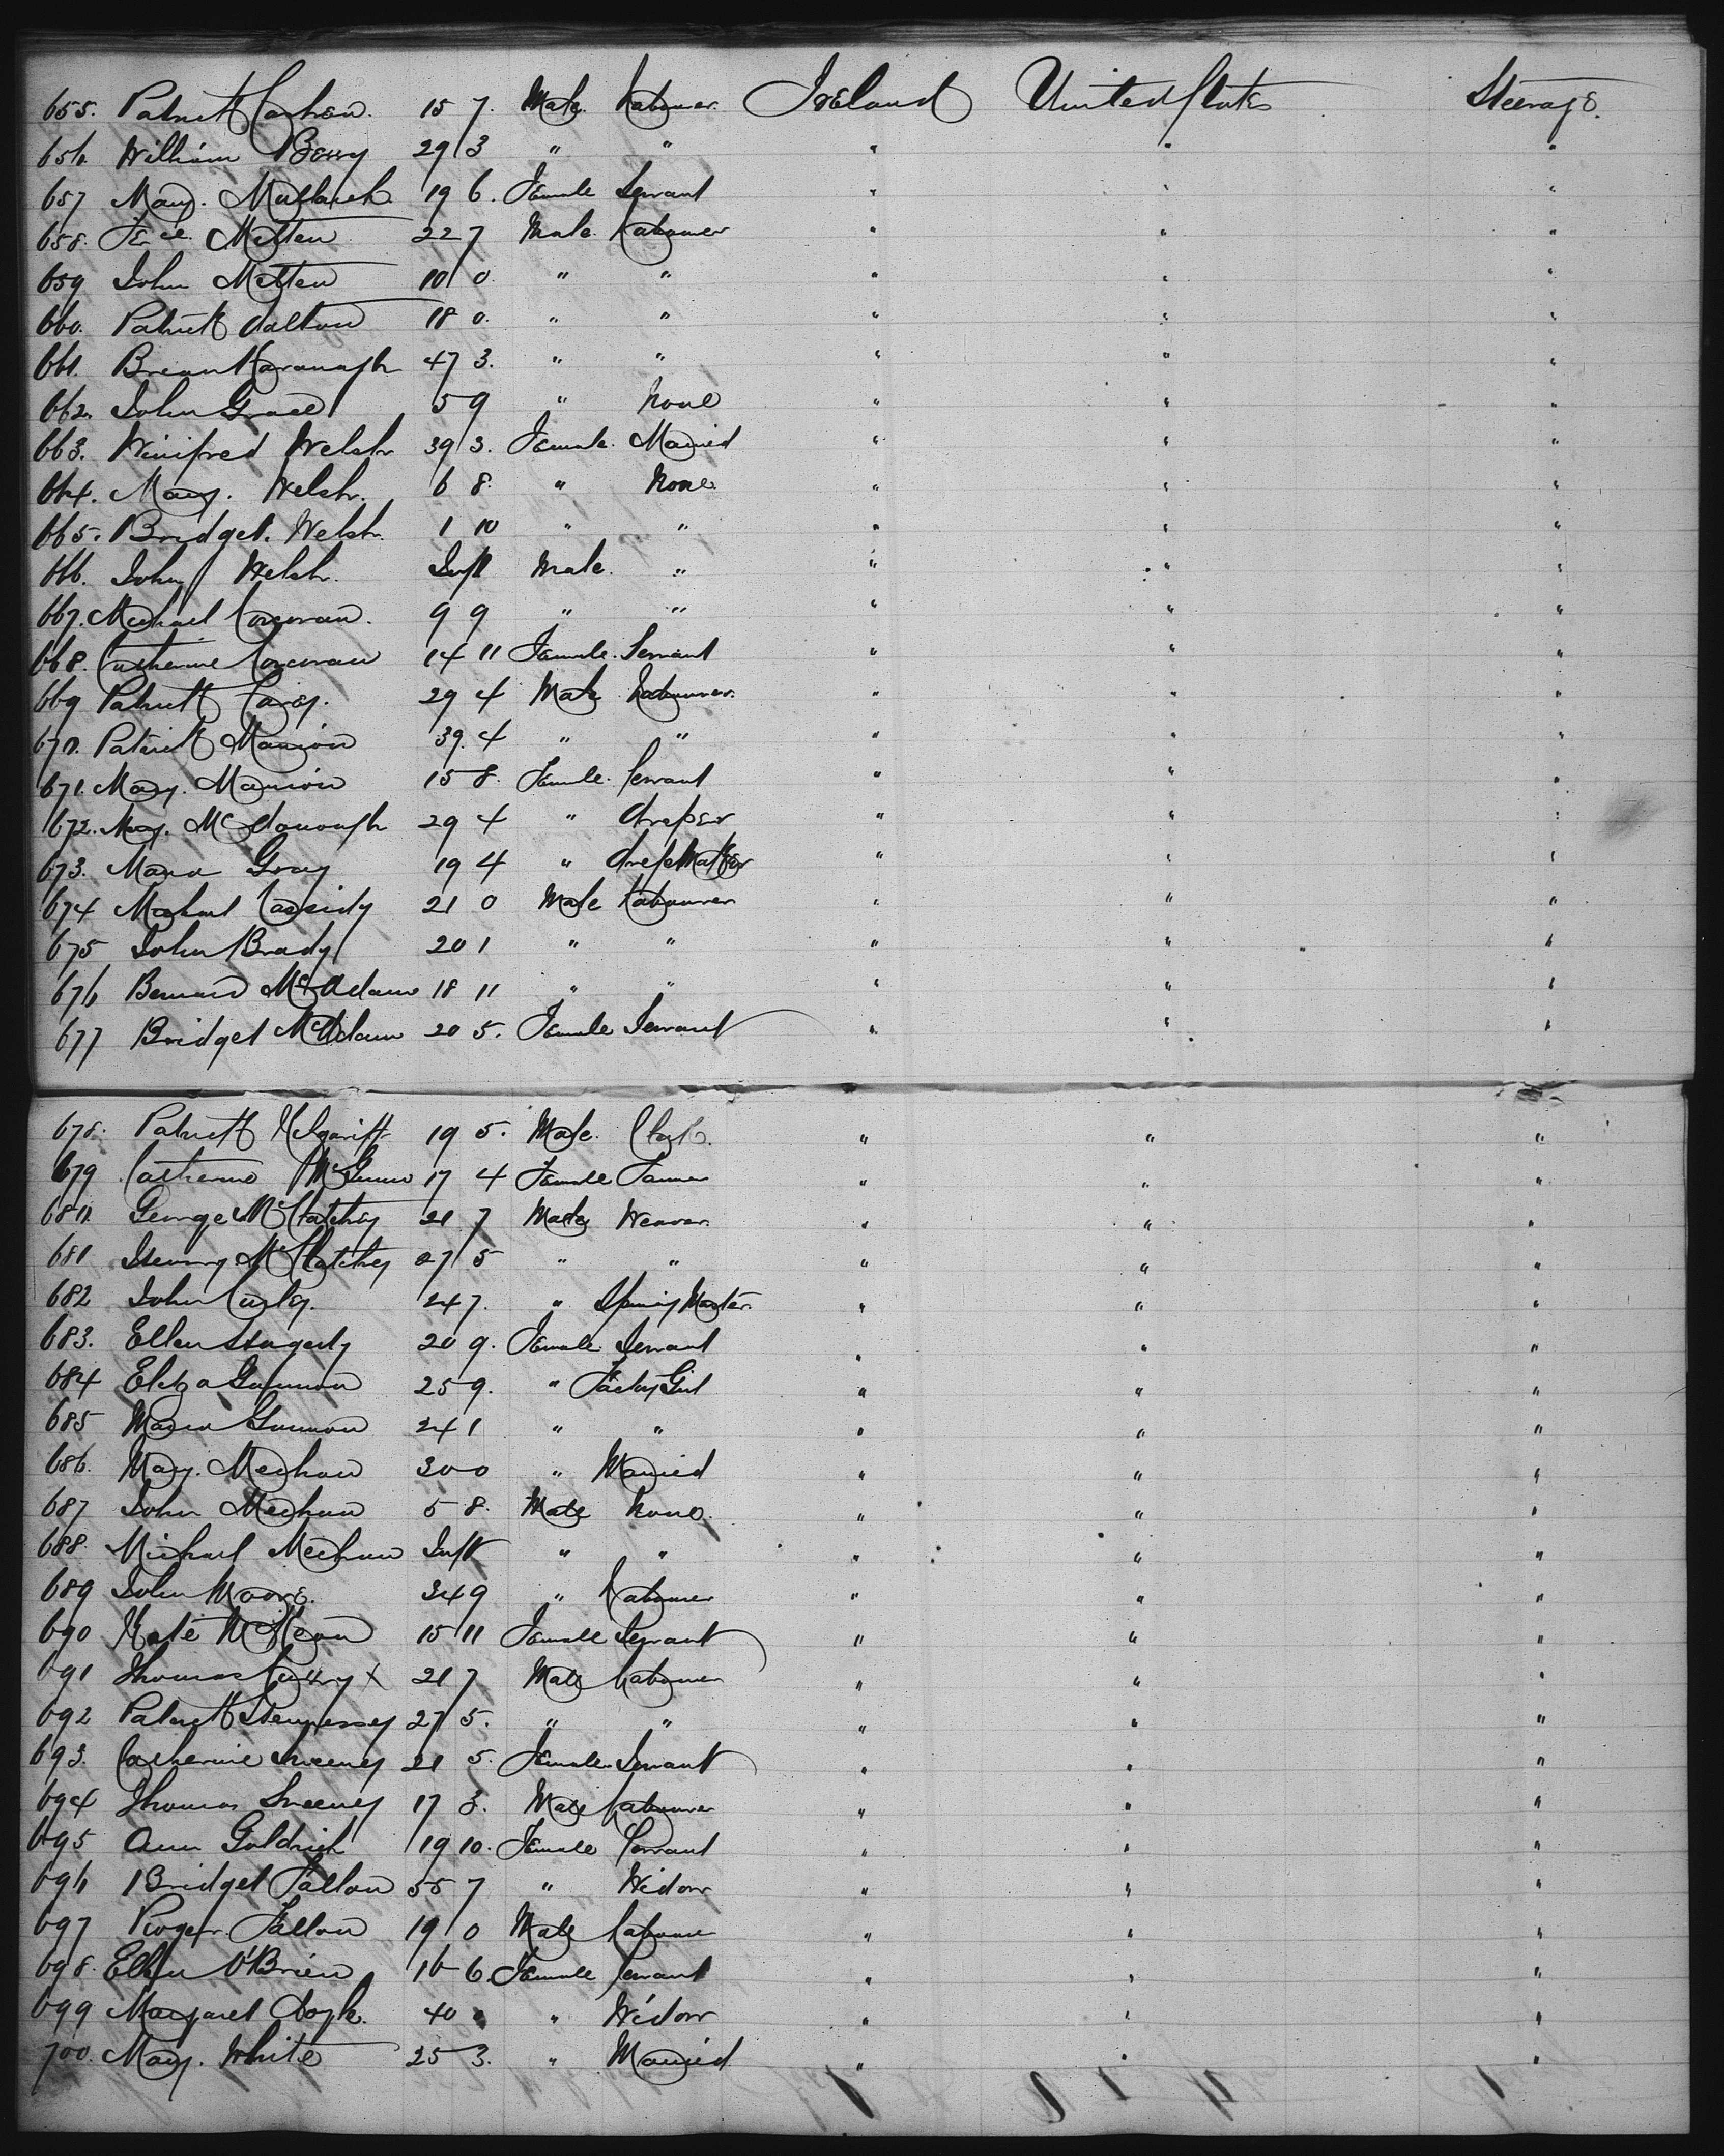 655. Patrick Cashen. 15 7. Male Labourer Ireland United States Steerage.
656. William Berry 29 3 " " " " "
657 Mary. Mullarek. 19 6. Female Servant " " "
658. Metten 22 7 Male Labourer " " "
659 John Metten 10 0 " " " " "
660. Patrick Dalton 18 0. " " " " "
661. Brian Kavanagh 47 3. " " " " "
662. John Grace 5 9 " None " " "
663. Winifred Welsh 39 3. Female Married " " "
664. Mary. Welsh. 6 8 " None " " "
665. Bridget. Welsh. 1 10 " " " " "
666. John Welsh. Inft Male. " " " "
667. Michael Corcoran. 9 9 " " " " "
668. Catherine Corcoran 14 11 Female Servant " " "
669 Patrick Carey. 29 4 Male Labourer. " " "
670. Patrick Manion 39. 4 " " " " "
671. Mary. Manion 15 8. Female Servant " " "
672. Mary. McDonough 29 4 " Draper " " "
673. Maria Gray 19 4 " Dressmaker " " "
674 Michael Cassidy 21 0 Male Labourer " " "
675 John Brady 20 1 " " " " "
676 Bernard McAdam 18 11 " " " " "
677 Bridget McAdam 20 5. Female Servant " " "
678. Patrick Kilgariff 19 5. Male. Clerk. " " "
679 Catherine McGinn 17 4 Female " " "
680. George McClatchey 21 7 Male Weaver " " "
681 Henry McClatchey 27 5 " " " " "
682 John Curley. 24 7. " Master " " "
683. Ellen Hagerty 20 9. Female Servant " " "
684 Eliza Gannon 25 9. " Factory Girl " " "
685 Maria Gannon 24 1 " " " " "
686. Mary. Meehan 30 0 " Married " " "
687 John Meehan 5 8. Male None. " " "
688. Michael Meehan Inft " " " " "
689 John Moore. 34 9 " Labourer " " "
690 Kate McKeon 15 11 Female Servant " " "
691 Thomas Curry x 21 7 Male Labourer " " "
692 Patrick Hennessey 27 5. " " " " "
693. Catherine Sweeney 21 5. Female Servant " " "
694 Thomas Sweeney 17 3. Male Labourer " " "
695 Ann Goldrick 19 10. Female Servant " " "
696 Bridget Fallon 55 7 " Widow " " "
697 Roger Fallon 19 0 Male Labourer " " "
698. Ellen O'Brien 16 6. Female Servant " " "
699 Margaret Doyle. 40 " Widow " " "
700. Mary. White 25 3. " Married " " "